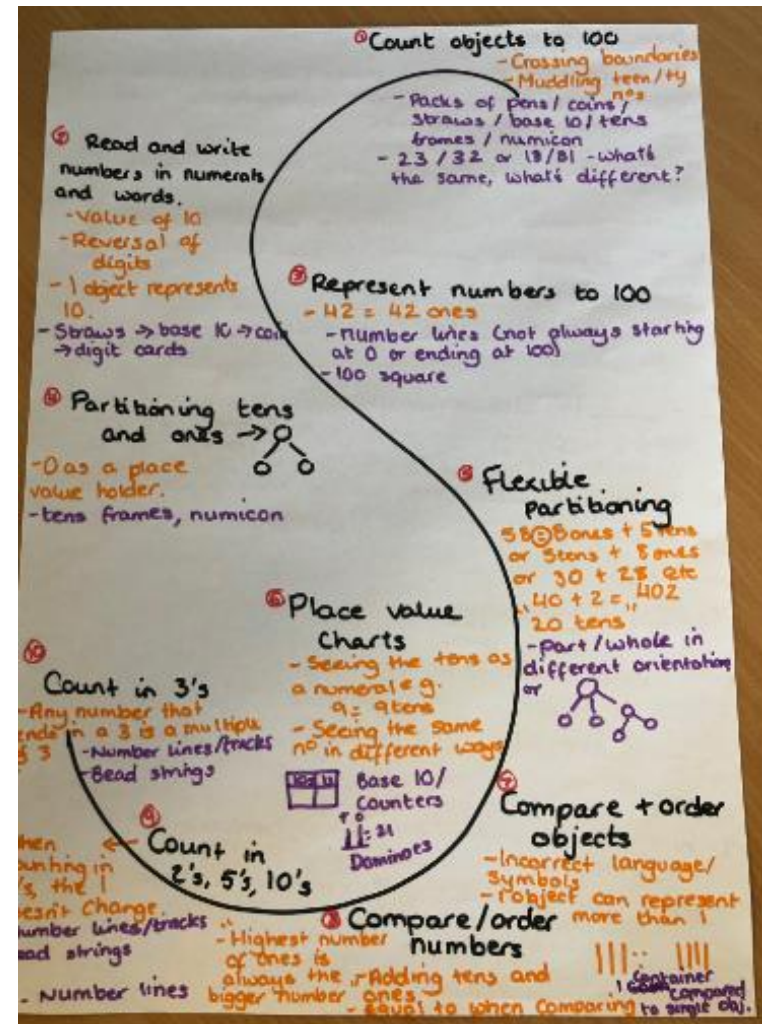 ① Count objects to 100
- Crossing boundaries
- Muddling teen/ty
nos
- Packs of pens / coins /
straws / base 10 / tens
frames / numicon
- 23 / 32 or 18/81 - what's
the same, what's different?
② Read and write
numbers in numerals
and words.
- Value of 10
- Reversal of
digits
- 1 object represents
10.
- Straws → base 10 → coin
→ digit cards
③ Represent numbers to 100
- 42 = 42 ones
- number lines (not always starting
at 0 or ending at 100)
- 100 square
④ Partitioning tens
and ones →
- 0 as a place
value holder.
- tens frames, numicon
⑤ Flexible
partitioning
58 = 8 ones + 5 tens
or 5 tens + 8 ones
or 30 + 28 etc
"40 + 2 = "402
20 tens
- part/whole in
different orientation
or
⑥ Place value
charts
- Seeing the tens as
a numeral e.g.
9 = 9 tens
- Seeing the same
no in different ways
Base 10/
Counters
T O
= 21
Dominoes
⑦ Compare + order
objects
- Incorrect language/
symbols
- 1 object can represent
more than 1
container
compared
to single obj.
⑧ Compare/order
numbers
- Highest number
of ones is
always the
bigger number
- Adding tens and
ones
- equal to when comparing
- Number lines
⑨ Count in
2's, 5's, 10's
←
hen
unting in
's, the 1
esn't change.
umber lines/tracks
ead strings
⑩
Count in 3's
- Any number that
ends in a 3 is a multiple
3
- Number lines/tracks
- Bead strings